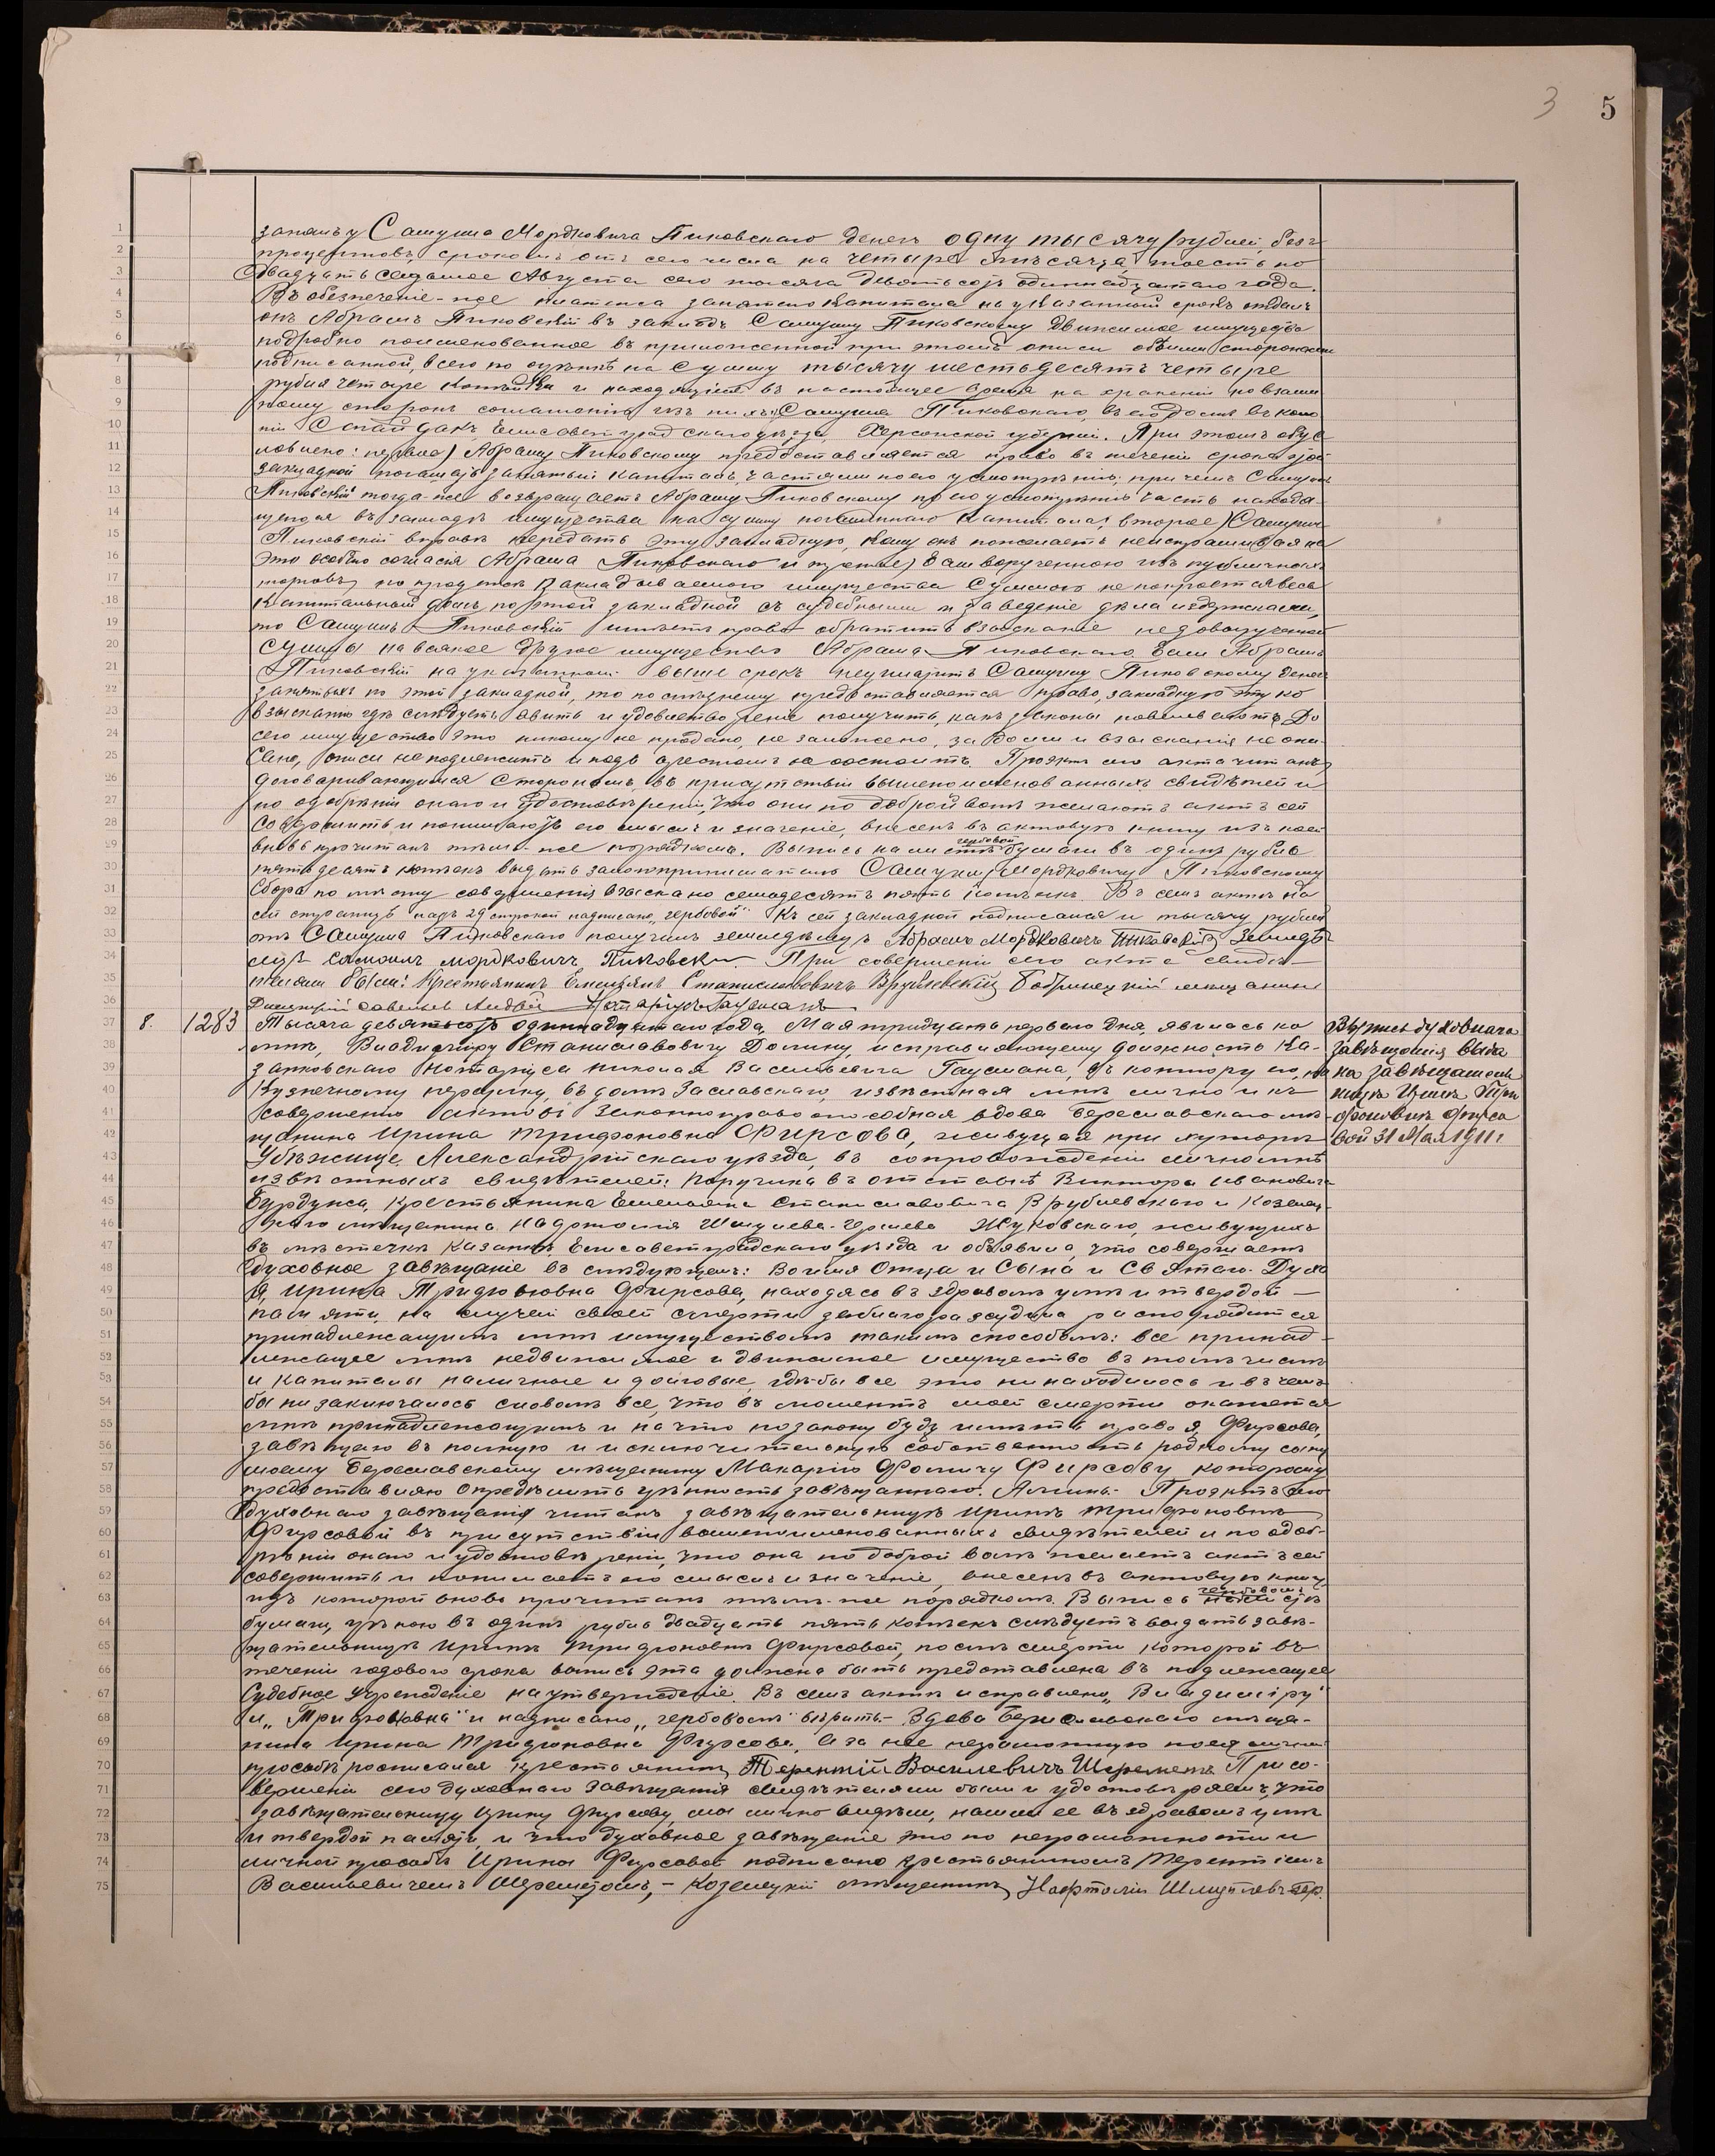 3 5
занялъ у Самуила Мордковича Пиковскаго денегъ одну тысячу рублей, безъ
процентовъ, срокомъ отъ сего числа на четыре мѣсяца, тоесть по
двадцать седьмое Августа сего тысяча девятьсотъ одиннадцатаго года.
Въ обезпеченіе-же платежа занятого капитала на указанный срокъ отдалъ
онъ Абрамъ Пиковскій въ закладъ Самуилу Пиковскому движимое имущество
подробно поименованное въ приложенной при этомъ описи обѣими сторонами
подписанной, всего по оцѣнкѣ на сумму тысячу шестьдесятъ четыре
рубля четыре копѣйки и находящіеся въ настоящее время на храненіи по взаим
ному сторонъ соглашенію изъ нихъ Самуила Пиковскаго, въ его домѣ въ коло
ніи Сагайдакъ, Елисаветградскаго уѣзда, Херсонской губерніи. При этомъ обус
ловлено: первое) Абраму Пиковскому предоставляется право въ теченіи срока этой
закладной погашать занятый капиталъ, частями по его усмотрѣнію, при чемъ Самуилъ
Пиковскій тогда-же возвращаетъ Абраму Пиковскому по его усмотрѣнію часть находя-
щегося въ закладѣ имущества на сумму погашеннаго капитала; второе) Самуилъ
Пиковскій вправѣ передать эту закладную, кому онъ пожелаетъ неиспрашивая на
это особаго согласія Абрама Пиковскаго и третье) Если вырученною изъ публичныхъ
торговъ, по продажѣ закладываемого имущества суммою не покроется весь
капитальный долгъ по этой закладной съ судебными и за веденіе дѣла издержками,
то Самуилъ Пиковскій имѣетъ право обратить взысканіе недовырученной
суммы на всякое другое имущество Абрама Пиковскаго. Если Абрамъ
Пиковскій на указанный выше срокъ неуплатитъ Самуилу Пиковскому денегъ
занятыхъ по этой закладной, то послѣднему предоставляется право, закладную эту ко
взысканію гдѣ слѣдуетъ явить и удовлетвореніе получить, какъ законы повелеваютъ. До
сего имущество это никому не продано, не заложено, за долги и взысканія не опи-
сано, описи неподлежитъ и подъ арестомъ не состоитъ. Проэктъ сего акта читанъ
договаривающимся сторонамъ, въ присутствіи вышепоименованныхъ свидѣтелей и
по одобреніи онаго и удостовѣреніи, что они по доброй волѣ желаютъ актъ сей
совершить и понимаютъ его смыслъ и значеніе, внесенъ въ актовую книгу изъ коей
гербовой
вновь прочитанъ тѣмъ-же порядкомъ. Выпись на листѣ бумаги въ одинъ рубль
пятьдесятъ копѣекъ выдать залогопринимателю Самуилу Мордковичу Пиковскому
Сбора по мѣсту совершенія взыскано семьдесятъ пять копѣекъ. Въ семъ актѣ на
сей страницѣ надъ 29 строкой надписано „гербовой". Къ сей закладной подписался и тысячу рублей
отъ Самуила Пиковскаго получилъ земледѣлецъ Абрамъ Мордковичъ Пиковскій Земледѣ
лецъ Самоилъ Мордковичъ Пиковски. При совершеніи сего акта свидѣ-
телями были: Крестьянинъ Емельянъ Станиславовичъ Врублевскій Бобринецкій мещанинъ
Дмитрій Савельев Нотаріусъ Гаусманъ
8. 1283 Тысяча девятьсотъ одиннадцатаго года, Мая тридцать перваго дня, явилась ко
мнѣ, Владиміру Станиславовичу Долину, исправляющему должность Ка-
занковскаго Нотаріуса Николая Васильевича Гаусмана, въ контору его, на
Кузнечному переулку, въ домѣ Заславскаго, извѣстная мнѣ лично и къ
совершенію актовъ законноправоспособная вдова Береславскаго мѣ-
щанина Ирина Трифоновна Фирсова, живущая при хуторѣ
Убѣжище, Александрійскаго уѣзда, въ сопровожденіи лично мнѣ
извѣстныхъ свидѣтелей: поручика въ отставкѣ Виктора Ивановича
Бурдунса, крестьянина Емельяна Станиславовича Врублевскаго и Козелец-
каго мѣщанина Нафтолія Шмулева-Гершева Жуковскаго, живущихъ
въ мѣстечкѣ Казанкѣ, Елисаветградскаго уѣзда и объявила, что совершаетъ
духовное завѣщаніе въ слѣдующемъ: Во имя Отца и Сына и Святаго Духа
Я, Ирина Трифоновна Фирсова, находясь въ здравомъ умѣ и твердой —
памяти, на случай своей смерти заблагоразсудила распорядиться
принадлежащимъ мнѣ имуществомъ такимъ способомъ: все принад-
лежащее мнѣ недвижимое и движимое имущество въ томъ числѣ
и капиталы наличные и долговые, гдѣ-бы все это ни находилось и въ чемъ
бы ни заключалось словомъ все, что въ моментъ моей смерти окажется
мнѣ принадлежащимъ и на что по закону буду имѣть право я, Фирсова,
завѣщаю въ полную и исключительную собственность родному сыну
моему Береславскому мѣщанину Макарію Фомичу Фирсову которому
предоставляю опредѣлить цѣнность завѣщаннаго. Аминь. Проэктъ сего
духовнаго завѣщанія читанъ завѣщательницѣ Иринѣ Трифоновнѣ
Фирсовой въ присутствіи вышепоименованныхъ свидѣтелей и по одоб-
реніи онаго и удостовѣреніи, что она по доброй волѣ желаетъ актъ сей
совершить и понимаетъ его смыслъ и значеніе, внесенъ въ актовую книгу
гербовомъ
изъ которой вновь прочитанъ тѣмъ-же порядкомъ. Выпись на листѣ
бумаги, цѣною въ одинъ рубль двадцать пять копѣекъ слѣдуетъ выдать завѣ-
щательницѣ Иринѣ Трифоновнѣ Фирсовой, послѣ смерти которой въ
теченіи годового срока выпись эта должна быть представлена въ подлежащее
Судебное учрежденіе на утвержденіе. Въ семъ актѣ исправлено „Владиміру"
и „Трифоновна" и надписано „гербовомъ" вѣрить.- Вдова Береславскаго мѣща-
нина Ирина Трифоновна Фирсова, а за нее неграмотную по ея личной
просьбѣ росписался крестьянинъ Терентій Василевичъ Шереметъ При со-
вершеніи сего духовнаго завѣщанія свидѣтелями были и удостовѣряемъ, что
завѣщательницу Ирину Фирсову, мы лично видѣли, нашли ее въ здравомъ умѣ
и твердой памяти, и что духовное завѣщаніе это по неграмотности и
личной просьбѣ Ирины Фирсовой подписано крестьяниномъ Терентіемъ
Васильевичемъ Шереметомъ, - Козелецкій мѣщанинъ Нафтолій Шмулевъ-Гер.
Выпись духовнаго
завѣщанія выда
на завѣщатель
ницѣ Иринѣ Три
фоновнѣ Фирсо
вой 31 Мая 1911 г